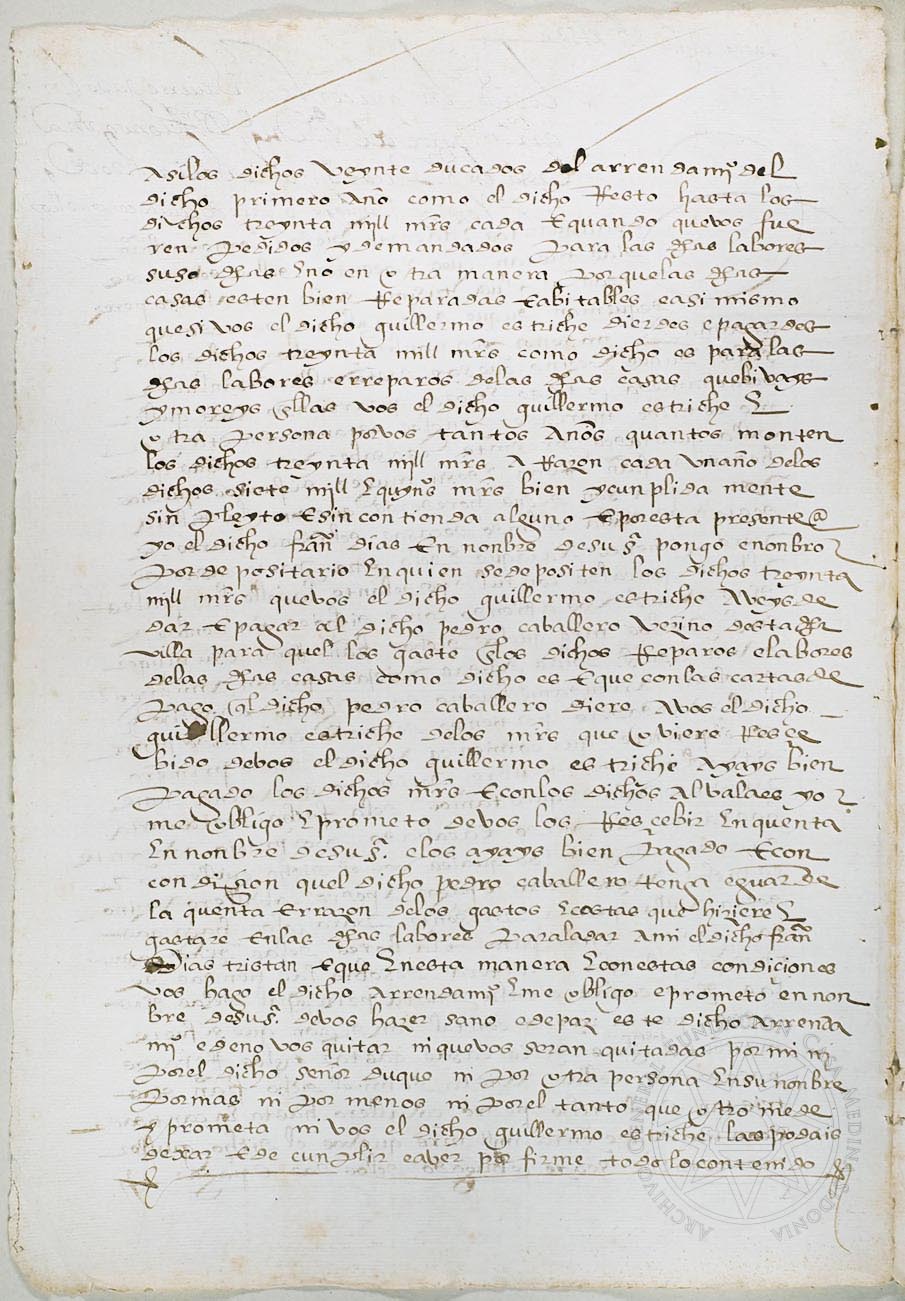 Asi los dichos veynte ducados del arrendamyº del
dicho primero Año como el dicho Resto hasta los
dichos treynta mill mrs cada E quando que vos fue
ren pedidos y demandados para las dhas labores
suso dhas E no en otra manera por que las dhas
casas esten bien Reparadas E abitables e asi mismo
que si vos el dicho guillermo estriche dierdes e pagardes
los dichos treynta mill mrs como dicho es para las
dhas labores e rreparos de las dhas casas que bivays
y moreys en ellas vos el dicho guillermo estriche E
otra persona por vos tantos Años quantos monten
los dichos treynta mill mrs A Razon cada un año de los
dichos siete mill E quynºs mrs bien y cunplida mente
sin pleyto E sin contienda alguno E por esta presente
yo el dicho franº dias En nonbre de su sª pongo e nonbro
por depositario En quien se depositen los dichos treynta
mill mrs que vos el dicho guillermo estriche Aveys de
dar E pagar al dicho pedro caballero vezino desta dha
villa para quel los gaste en los dichos Reparos e labores
de las dhas casas como dicho es E que con las cartas de
pago quel dicho pedro caballero diere A vos el dicho
guillermo estriche de los mrs que oviere Resce
bido de vos el dicho guillermo estriche Ayays bien
pagado los dichos mrs E con los dichos Alvalaes yo
me obligo E prometo de vos los Resçebir En quenta
En nonbre de su sª. e los ayays bien pagado E con
condiçion quel dicho pedro caballero tenga e guarde
la quenta E rrazon de los gastos E costas que hiziere E
gastare En las dhas labores para la dar A mi el dicho franº
Dias tristan E que En esta manera E con estas condiciones
vos hago el dicho Arrendamyº E me obligo e prometo en non
bre de su sª. de vos hazer sano e de paz este dicho Arrenda
myº e de no vos quitar ni que vos seran quitadas por mi ni
por el dicho señor duque ni por otra persona En su nonbre
por mas ni por menos ni por el tanto que otro me de
y prometa ni vos el dicho guillermo estriche las podais
dexar E de cunplir e aver por firme todo lo contenido
ARCHIVO GENERAL FUNDACIÓN CASA MEDINA SIDONIA